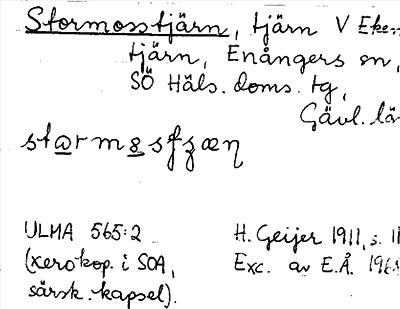 Stormosstjärn, tjärn V Eken
tjärn, Enångers sn,
SÖ Häls. doms. tg,
Gävl. lä
ULMA 565:2
(xerokop. i SOA,
särsk. kapsel).
H. Geijer 1911, s. 11
Exc. av E.Å. 1968